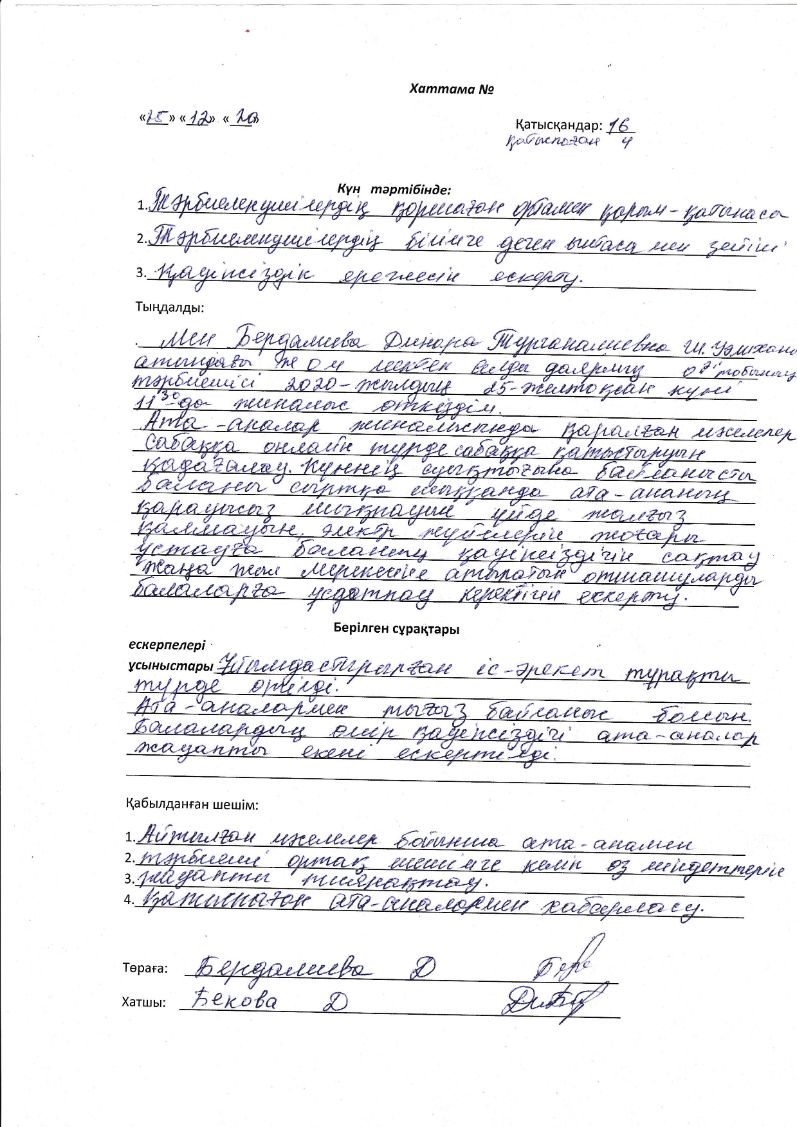 Хаттама №
«25» «12» «20»
Қатысқандар: 16
қатыспаған 4
Күн тәртібінде:
1. Тәрбиеленушілердің қоршаған ортамен қарым-қатынасы
2. Тәрбиеленушілердің білімге деген ынтасы мен зейіні
3. Қауіпсіздік ережесін ескерту.
Тыңдалды:
. Мен Бердалиева Динара Турганалиевна Ш. Уәлиханов
атындағы ЖОМ мектеп алды даярлық 0 "а" тобының
тәрбиешісі 2020-жылдың 25-желтоқсан күні
11 30-да жиналыс өткіздім.
Ата-аналар жиналысында қаралған мәселелер
сабаққа онлайн түрде сабаққа қатыстыруын
қадағалау. Күннің суықтығына байланысты
баланы сыртқа шыққанда ата-ананың
қарауысыз шықпауын үйде жалғыз
қалмауын, электр жүйелерін жоғары
ұстауға баланың қауіпсіздігін сақтау
жаңа жыл мерекесіне атылатын отшашуларды
балаларға ұстатпау керектігін ескерту.
Берілген сұрақтары
ескерпелері
ұсыныстары Ұйымдастырылған іс-әрекет тұрақты
түрде өтілді.
Ата-аналармен тығыз байланыс болсын.
Балалардың өмір қауіпсіздігі ата-аналар
жауапты екені ескертілді.
Қабылданған шешім:
1. Айтылған мәселелер бойынша ата-анамен
2. тәрбиеші ортақ шешімге келіп өз міндеттерін
3. жауапты тиянақтау.
4. Қатыспаған ата-аналармен хабарласу.
Төраға: Бердалиева Д
Хатшы: Бекова Д